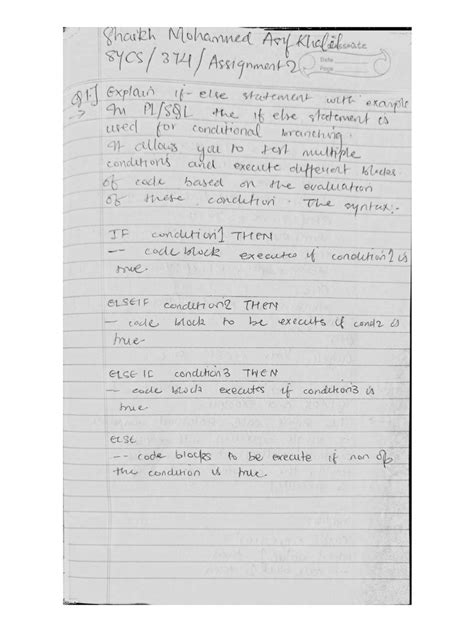 Shaikh Mohammed Asif Khalil
SYCS / 374 / Assignment 2
classmate
Date
Page
Q1] Explain if-else statement with example
-> In PL/SQL the if else statement is
used for conditional branching.
It allows you to test multiple
conditions and execute different blocks
of code based on the evaluation
of these condition. The syntax:-
IF condition1 THEN
-- code block executes if condition1 is
true.
ELSEIF condition2 THEN
- code block to be executs if cond2 is
true.
ELSE IF condition3 THEN
- code block executes if condition3 is
true.
ELSE
-- code blocks to be execute if non of
the condition is true.